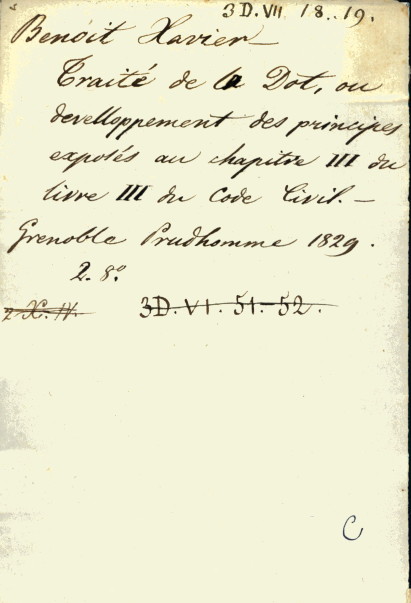 3 D. VII 18.. 19.
Benoit Xavier —
Traité de la Dot, ou
develloppement des principes
exposés au chapitre III du
livre III du Code Civil. —
Grenoble Prudhomme 1829.
2. 8.º
X. IV. 3D. VI. 51-52.
C